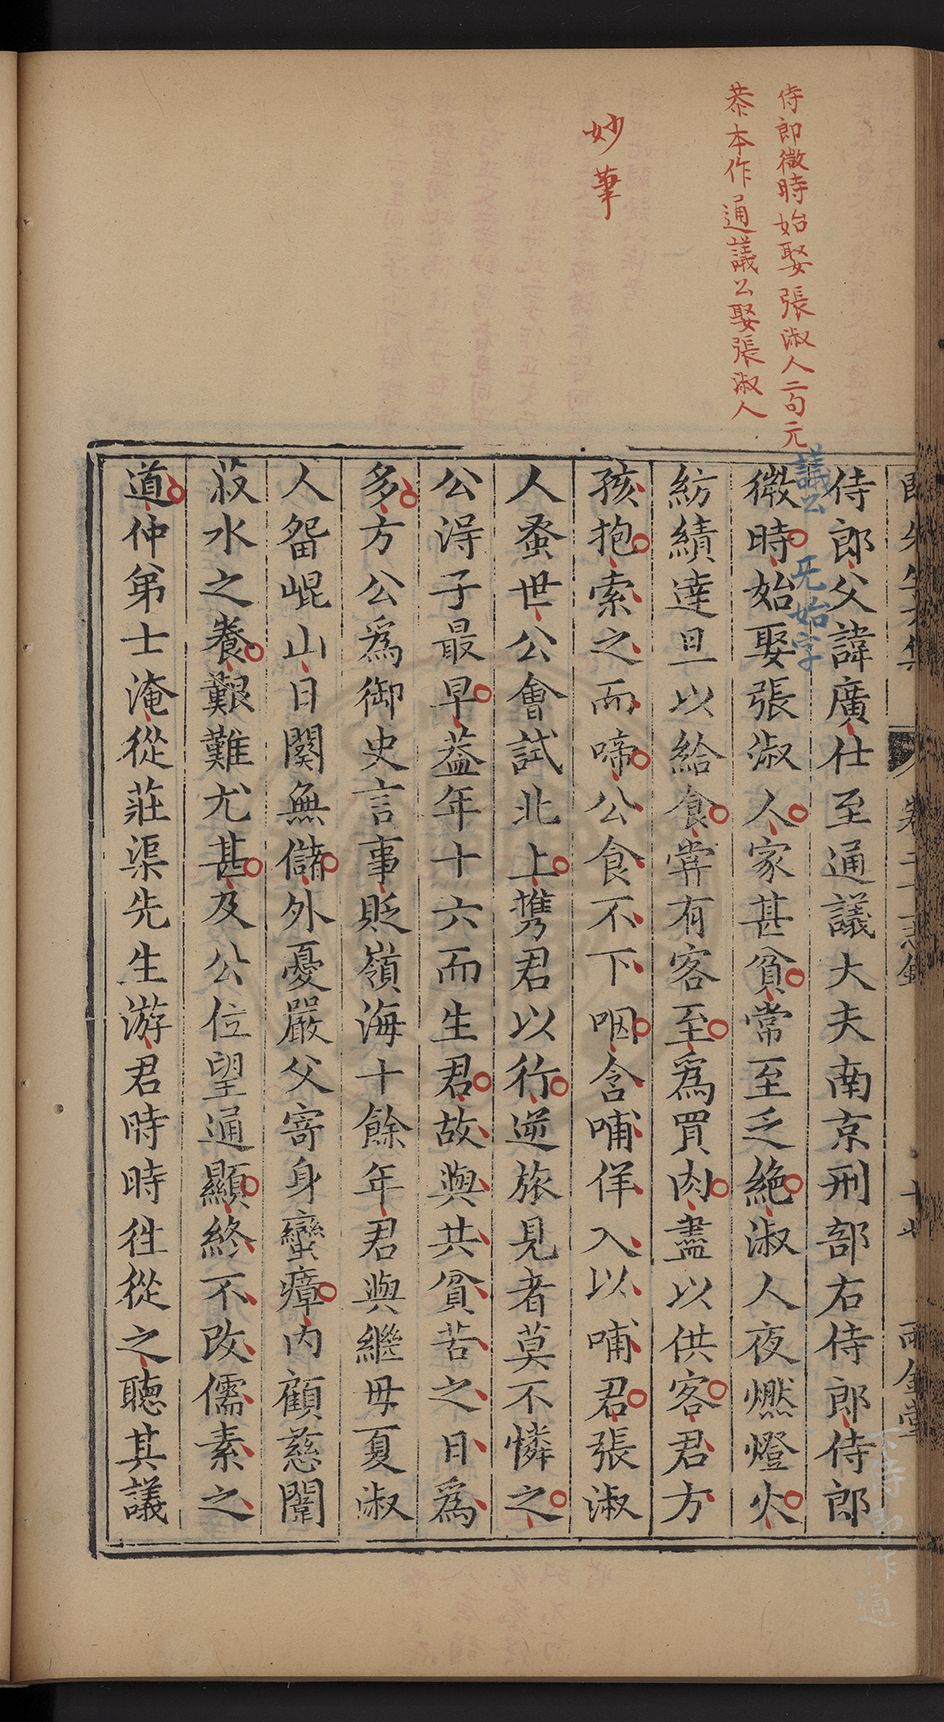 侍郎微時始娶張淑人二句元
恭本作通議公娶張淑人
妙筆
侍郎父諱廣仕至通議大夫南京刑部右侍郎侍郎
下侍郎作通
議公 无始字
微時始娶張淑人家甚貧常至乏絶淑人夜燃燈火
紡績達旦以給食嘗有客至爲買肉盡以供客君方
孩抱索之而啼公食不下咽含哺佯入以哺君張淑
人蚤世公會試北上携君以行逆旅見者莫不憐之
公淂子最早葢年十六而生君故與共貧苦之日爲
多方公爲御史言事貶嶺海十餘年君與繼母夏淑
人畱崐山日闋無儲外憂嚴父寄身蠻瘴内顧慈闈
菽水之養艱難尤甚及公位望通顯終不改儒素之
道仲弟士淹從莊渠先生游君時時徃從之聽其議